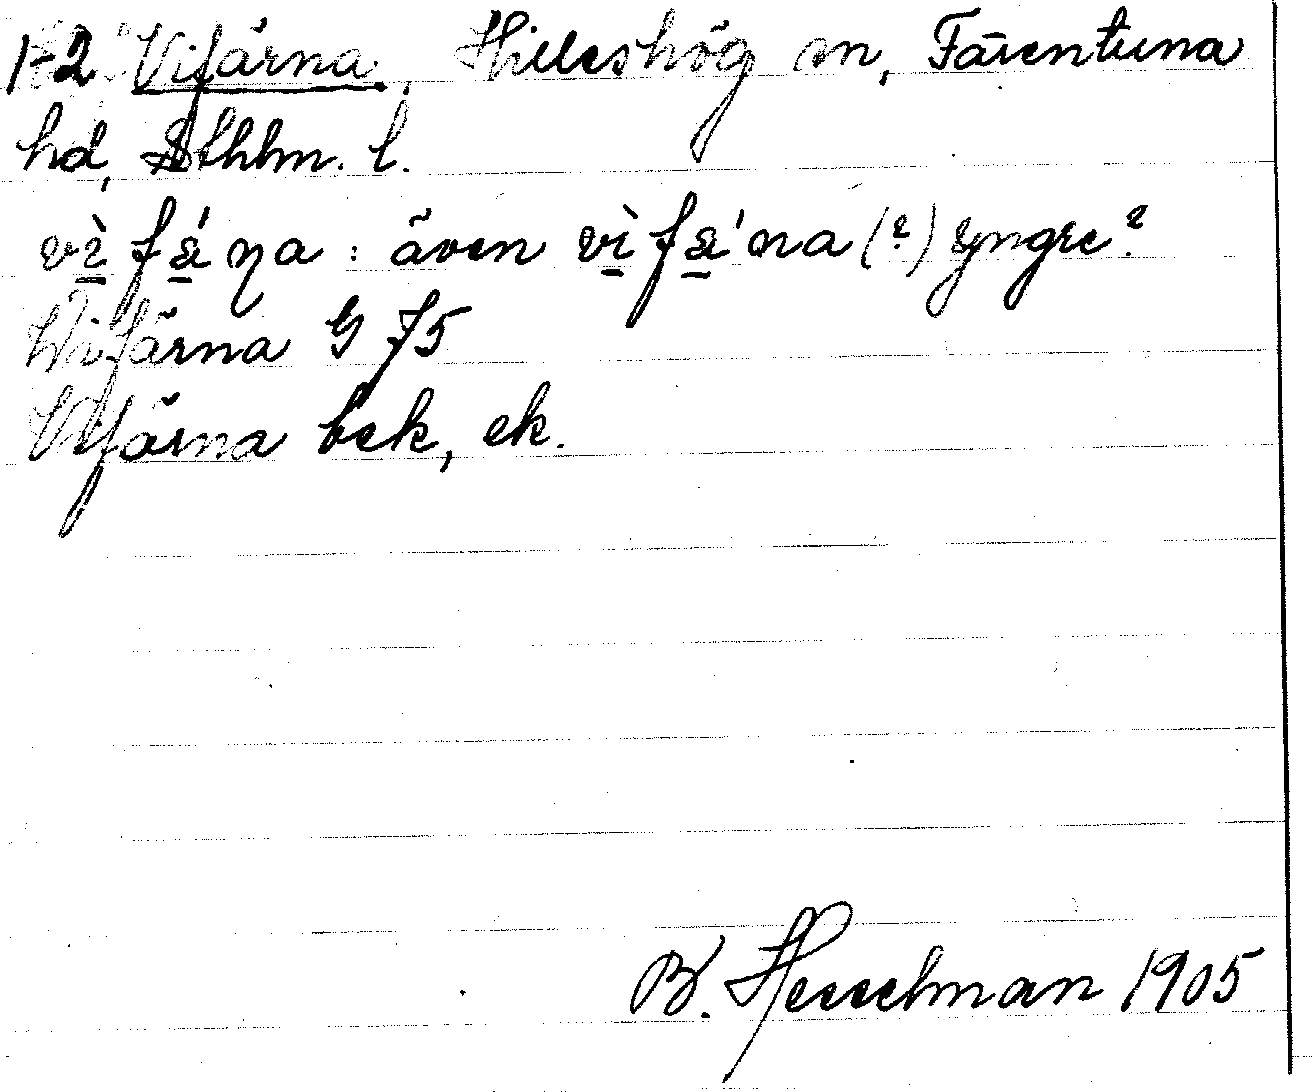 1-2 Vifärna, Hilleshög sn, Färentuna
hd, Sthlm. l.
vì fǽ ṇa : även vì fǽ na (?) yngre?
Wifärna G 75
Vifärna bek, ek.
B. Hesselman 1905